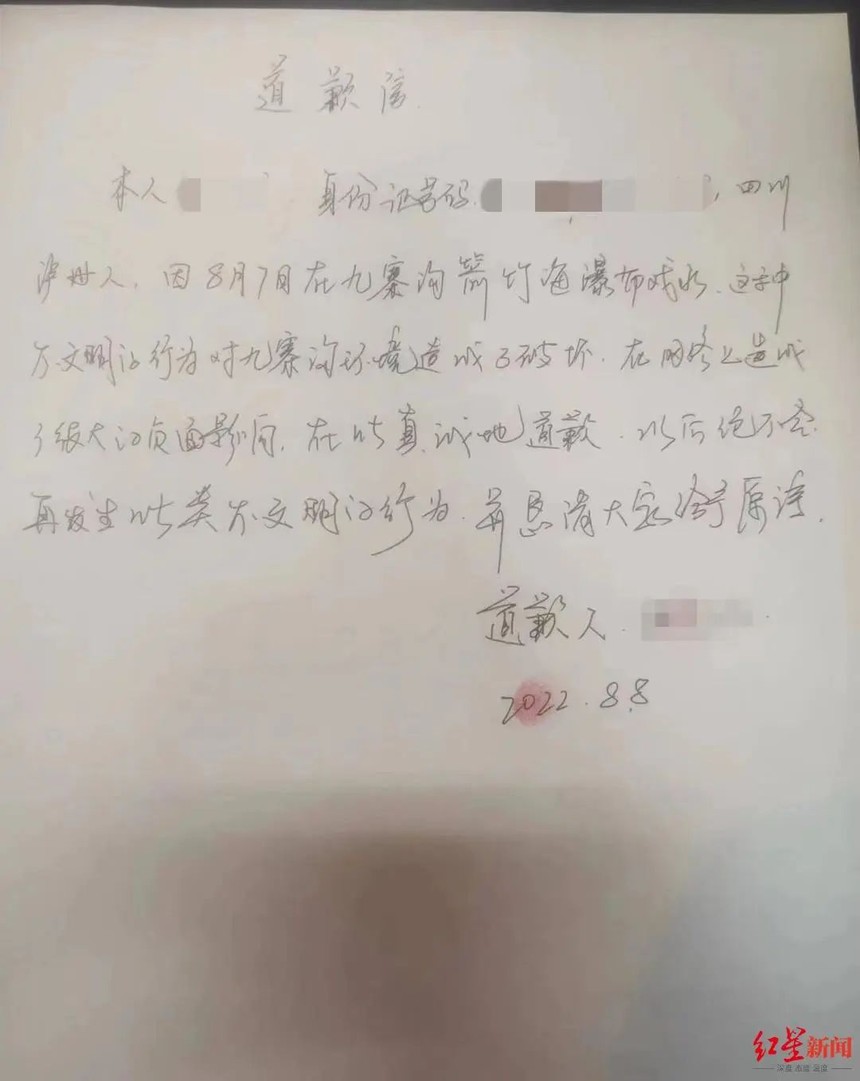 道歉信
本人 身份证号码 ，四川
泸州人，因8月7日在九寨沟箭竹海瀑布戏水，这种
不文明的行为对九寨沟环境造成了破坏，在网络上造成
了极大的负面影响，在此真诚地道歉，以后绝不会
再发生此类不文明的行为，并恳请大家给予原谅，
道歉人：
2022.8.8
红星新闻
深度 态度 温度